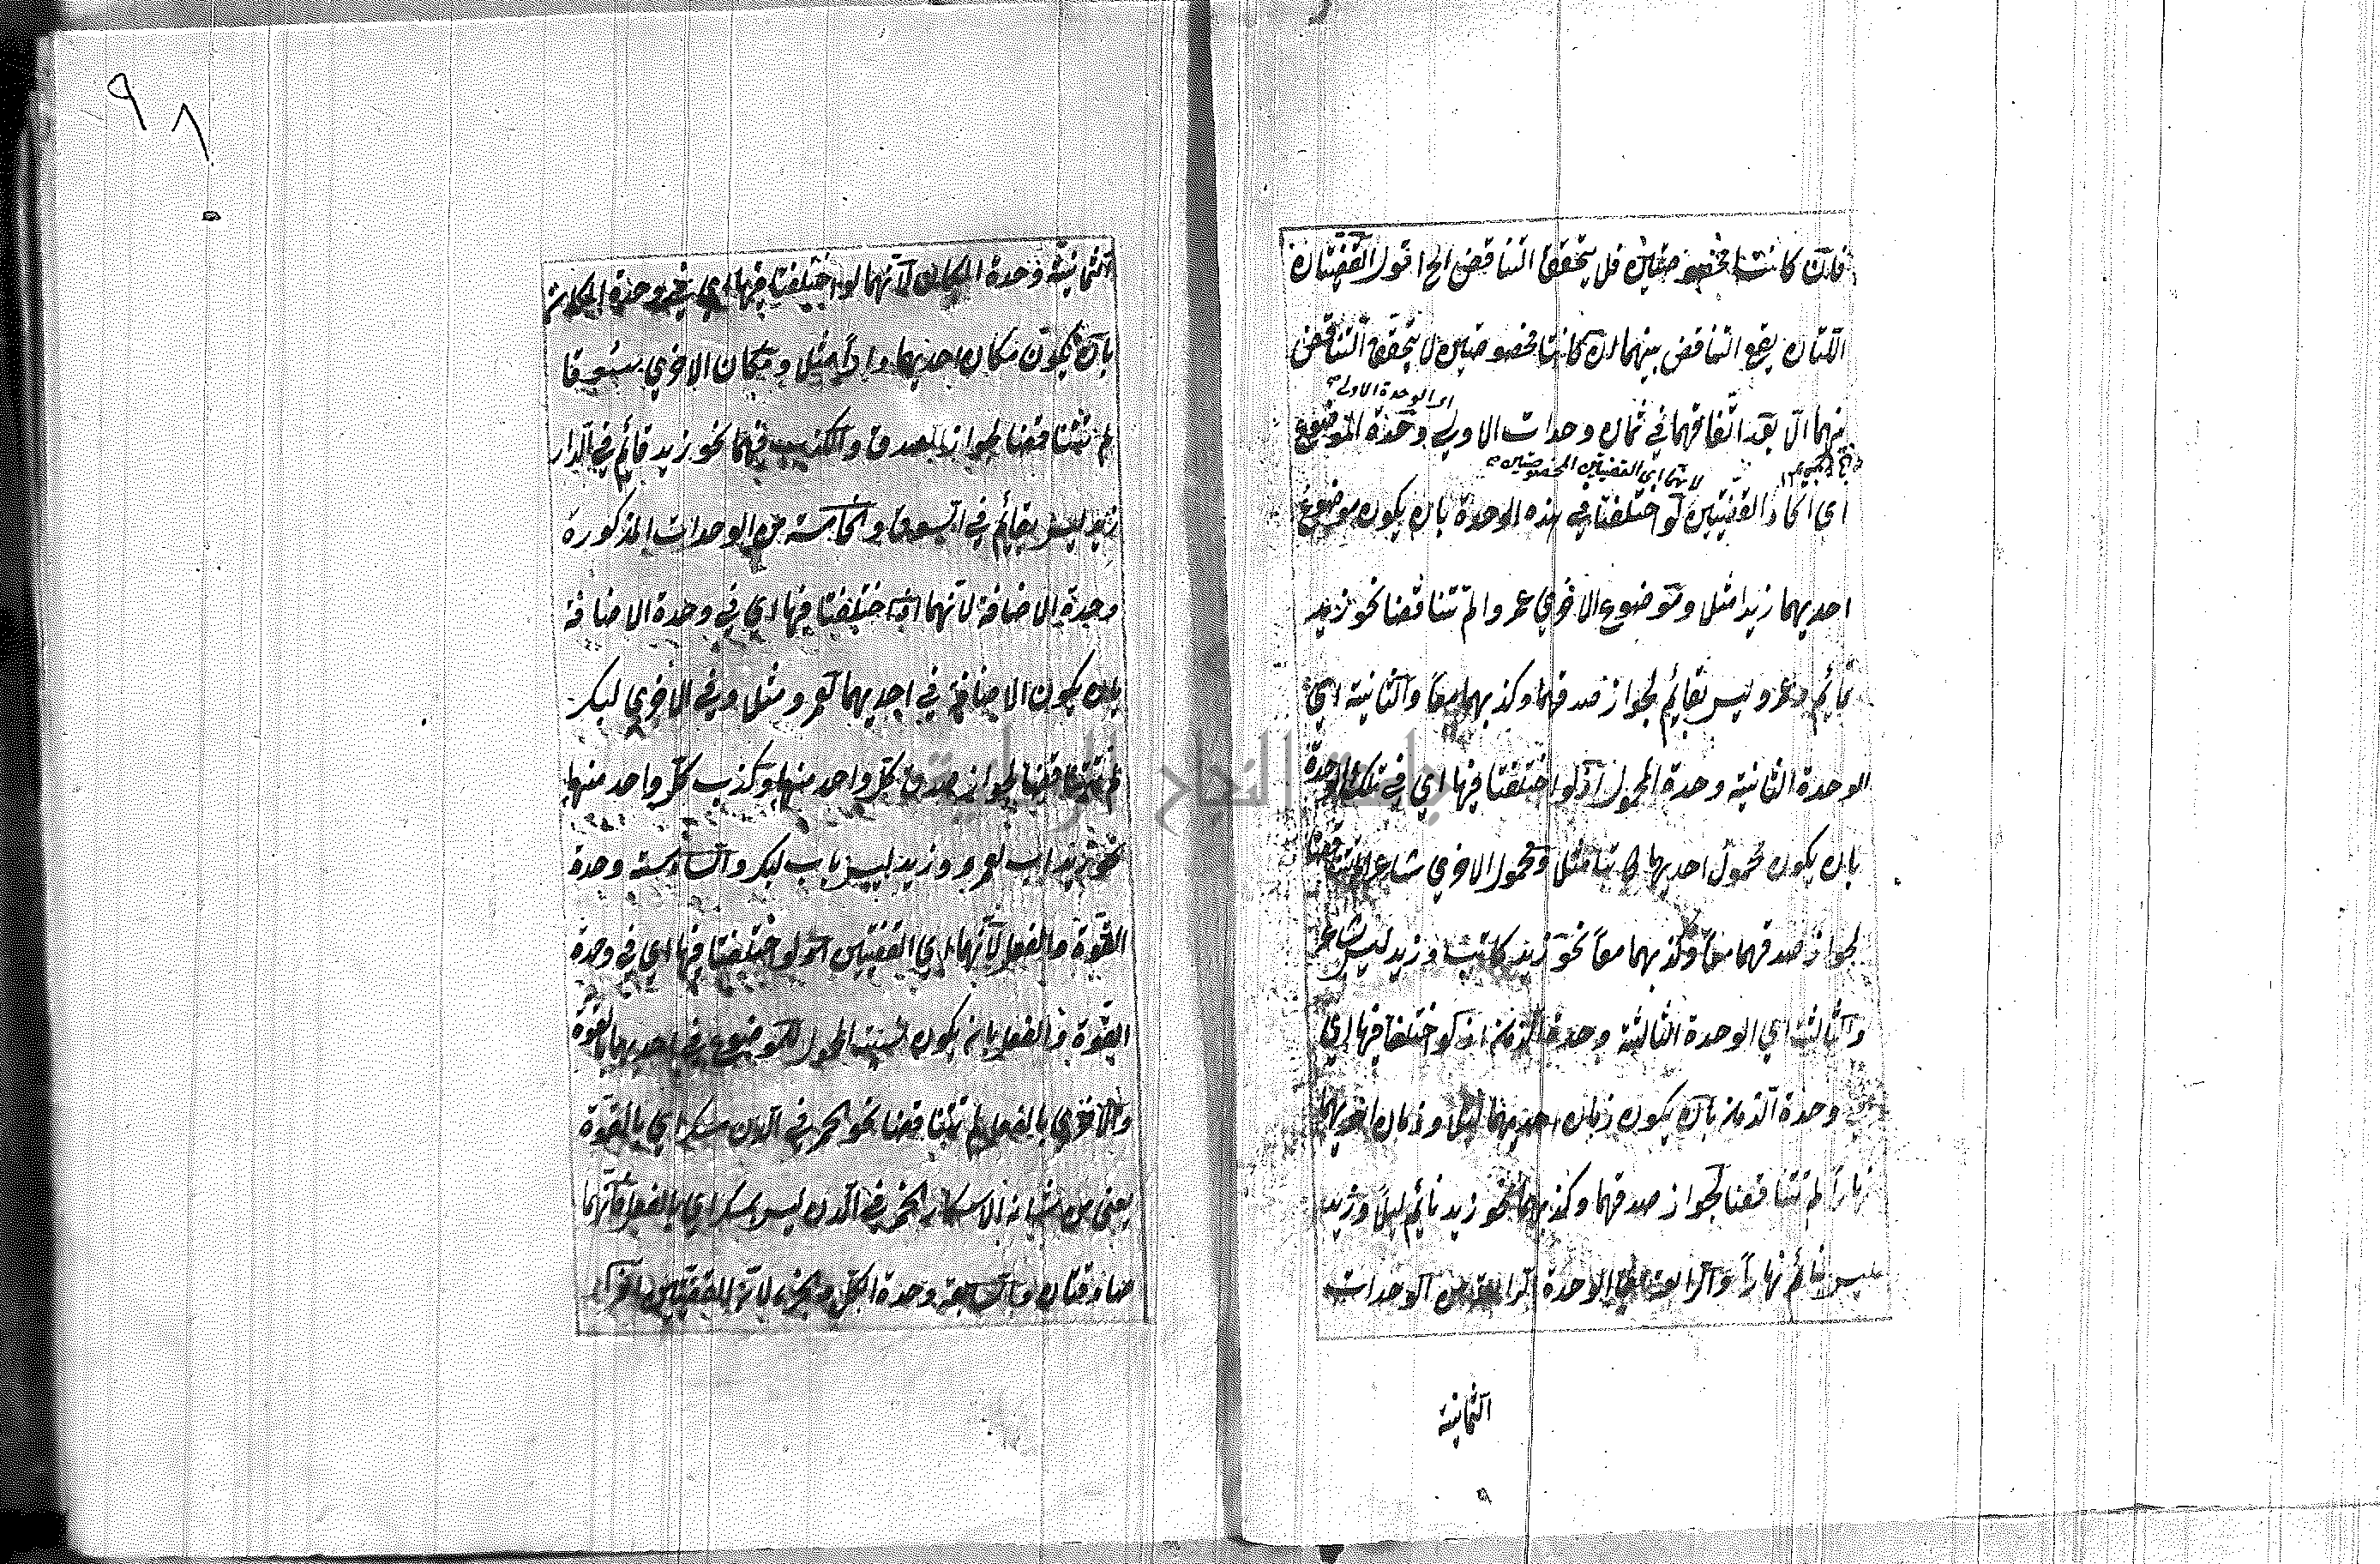 فان كانتا مخصوصتين فلا يتحقق التناقض الخ اقول القضيتان
اللتان يقع التناقض بينهما ان كانتا مخصوصتين لا يتحقق التناقض
اى الوحدة الاولى
بينهما الا بعد اتفاقهما في ثمان وحدات الاولى وحدة الموضوع
لانهما اي القضيتين المخصوصتين
اى القضيتين لو اختلفتا في هذه الوحدة بان يكون موضوع
احديهما زيدا مثلا وموضوع الاخرى عمروا لم تتناقضا نحو زيد
قائم وعمرو ليس بقائم لجواز صدقهما وكذبهما معا والثانية اي
الوحدة الثانية وحدة المحمول اذ لو اختلفتا فيها اي في تلك الوحدة
بان يكون محمول احديهما كاتبا مثلا ومحمول الاخرى شاعرا
لجواز صدقهما معا وكذبهما معا نحو زيد كاتب وزيد ليس بشاعر
والثالثة اي الوحدة الثالثة وحدة الزمان اذ لو اختلفتا فيها اي
وحدة الزمان بان يكون زمان احديهما ليلا وزمان اخريهما
نهارا لم تتناقضا لجواز صدقهما وكذبهما نحو زيد نائم ليلا وزيد
ليس نائم نهارا والرابعة اي الوحدة الرابعة من الوحدات
الثمانية
٩٨
الثمانية وحدة المكان لانهما لو اختلفتا فيها اي في وحدة المكان
بان يكون مكان احديهما دارا مثلا ومكان الاخرى سوقا
لم تتناقضا لجواز الصدق والكذب فيهما نحو زيد قائم في الدار
زيد ليس بقائم في السوق والخامسة من الوحدات المذكورة
وحدة الاضافة لانهما اختلفتا فيها اي في وحدة الاضافة
بان يكون الاضافة في احديهما لعمرو مثلا وفي الاخرى لبكر
لم تتناقضا لجواز صدق كل واحد منهما وكذب كل واحد منهما
نحو زيد اب لعمرو وزيد ليس باب لبكر والسادسة وحدة
القوة والفعل لانهما اي القضيتين لو اختلفتا فيها اي في وحدة
القوة والفعل بان يكون نسبة المحمول للموضوع في احديهما بالقوة
والاخرى بالفعل لم تتناقضا نحو الخمر في الدن مسكر اي بالقوة
يعني من شانه الاسكار الخمر في الدن ليس بمسكر اي بالفعل فانهما
صادقتان والسابعة وحدة الكل والجزء لانه